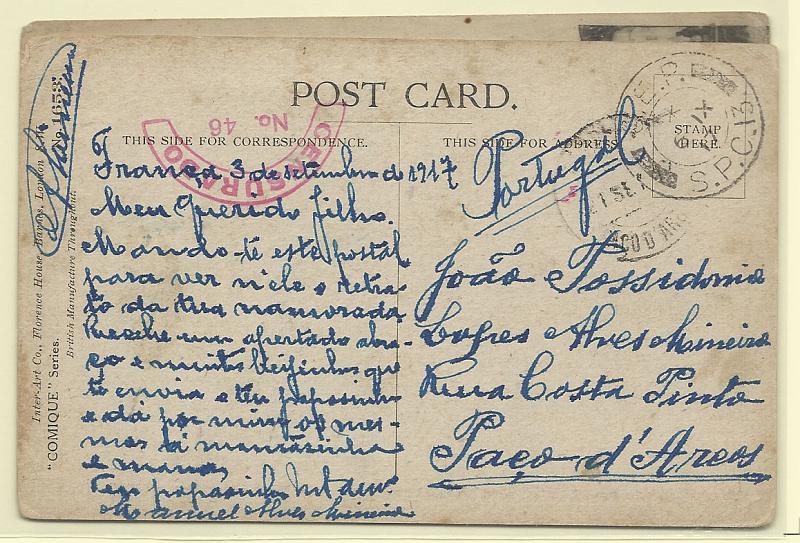 POST CARD.
THIS SIDE FOR CORRESPONDENCE.
THIS SIDE FOR ADDRESS.
STAMP
HERE.
CENSURADO
No. 46
S.P.C. 13
França 3 de setembro de 1917
Meu Querido filho.
Mando-te este postal
para ver n'ele o retra-
to da tua namorada.
Recebe um apertado abra-
ço e muitos beijinhos que
te envia o teu paposinho
e dá por mim os mes-
mos á mamãsinha
e manas
Teu paposinho
Manuel Alves Mineiro
Portugal
João Possidonio
Lopes Alves Mineiro
Rua Costa Pinto
Paço d'Arcos
Inter-Art Co., Florence House, Barnes, London, S.W.
"COMIQUE" Series.
British Manufacture Throughout.
No. 1653.